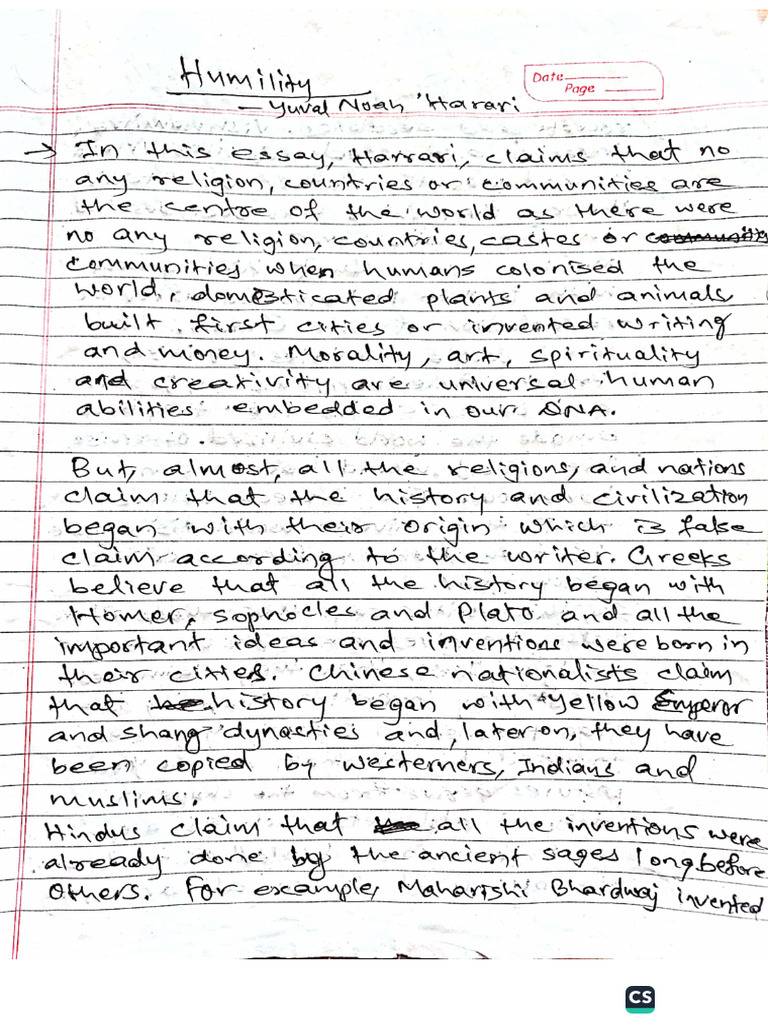 Humility
Date
Page
- Yuval Noah 'Harari
→ In this essay, Harrari, claims that no
any religion, countries or communities are
the centre of the world as there were
no any religion, countries, castes or communities
communities when humans colonised the
world, domesticated plants and animals
built first cities or invented writing
and money. Morality, art, spirituality
and creativity are universal human
abilities embedded in our DNA.
But, almost, all the religions, and nations
claim that the history and civilization
began with their origin which is false
claim according to the writer. Greeks
believe that all the history began with
Homer, Sophocles and Plato and all the
important ideas and inventions were born in
their cities. Chinese nationalists claim
that the history began with Yellow Emperor
and shang dynasties and, later on, they have
been copied by westerners, Indians and
muslims.
Hindus claim that all the inventions were
already done by the ancient sages long before
others. For example, Maharishi Bhardwaj invented
CS